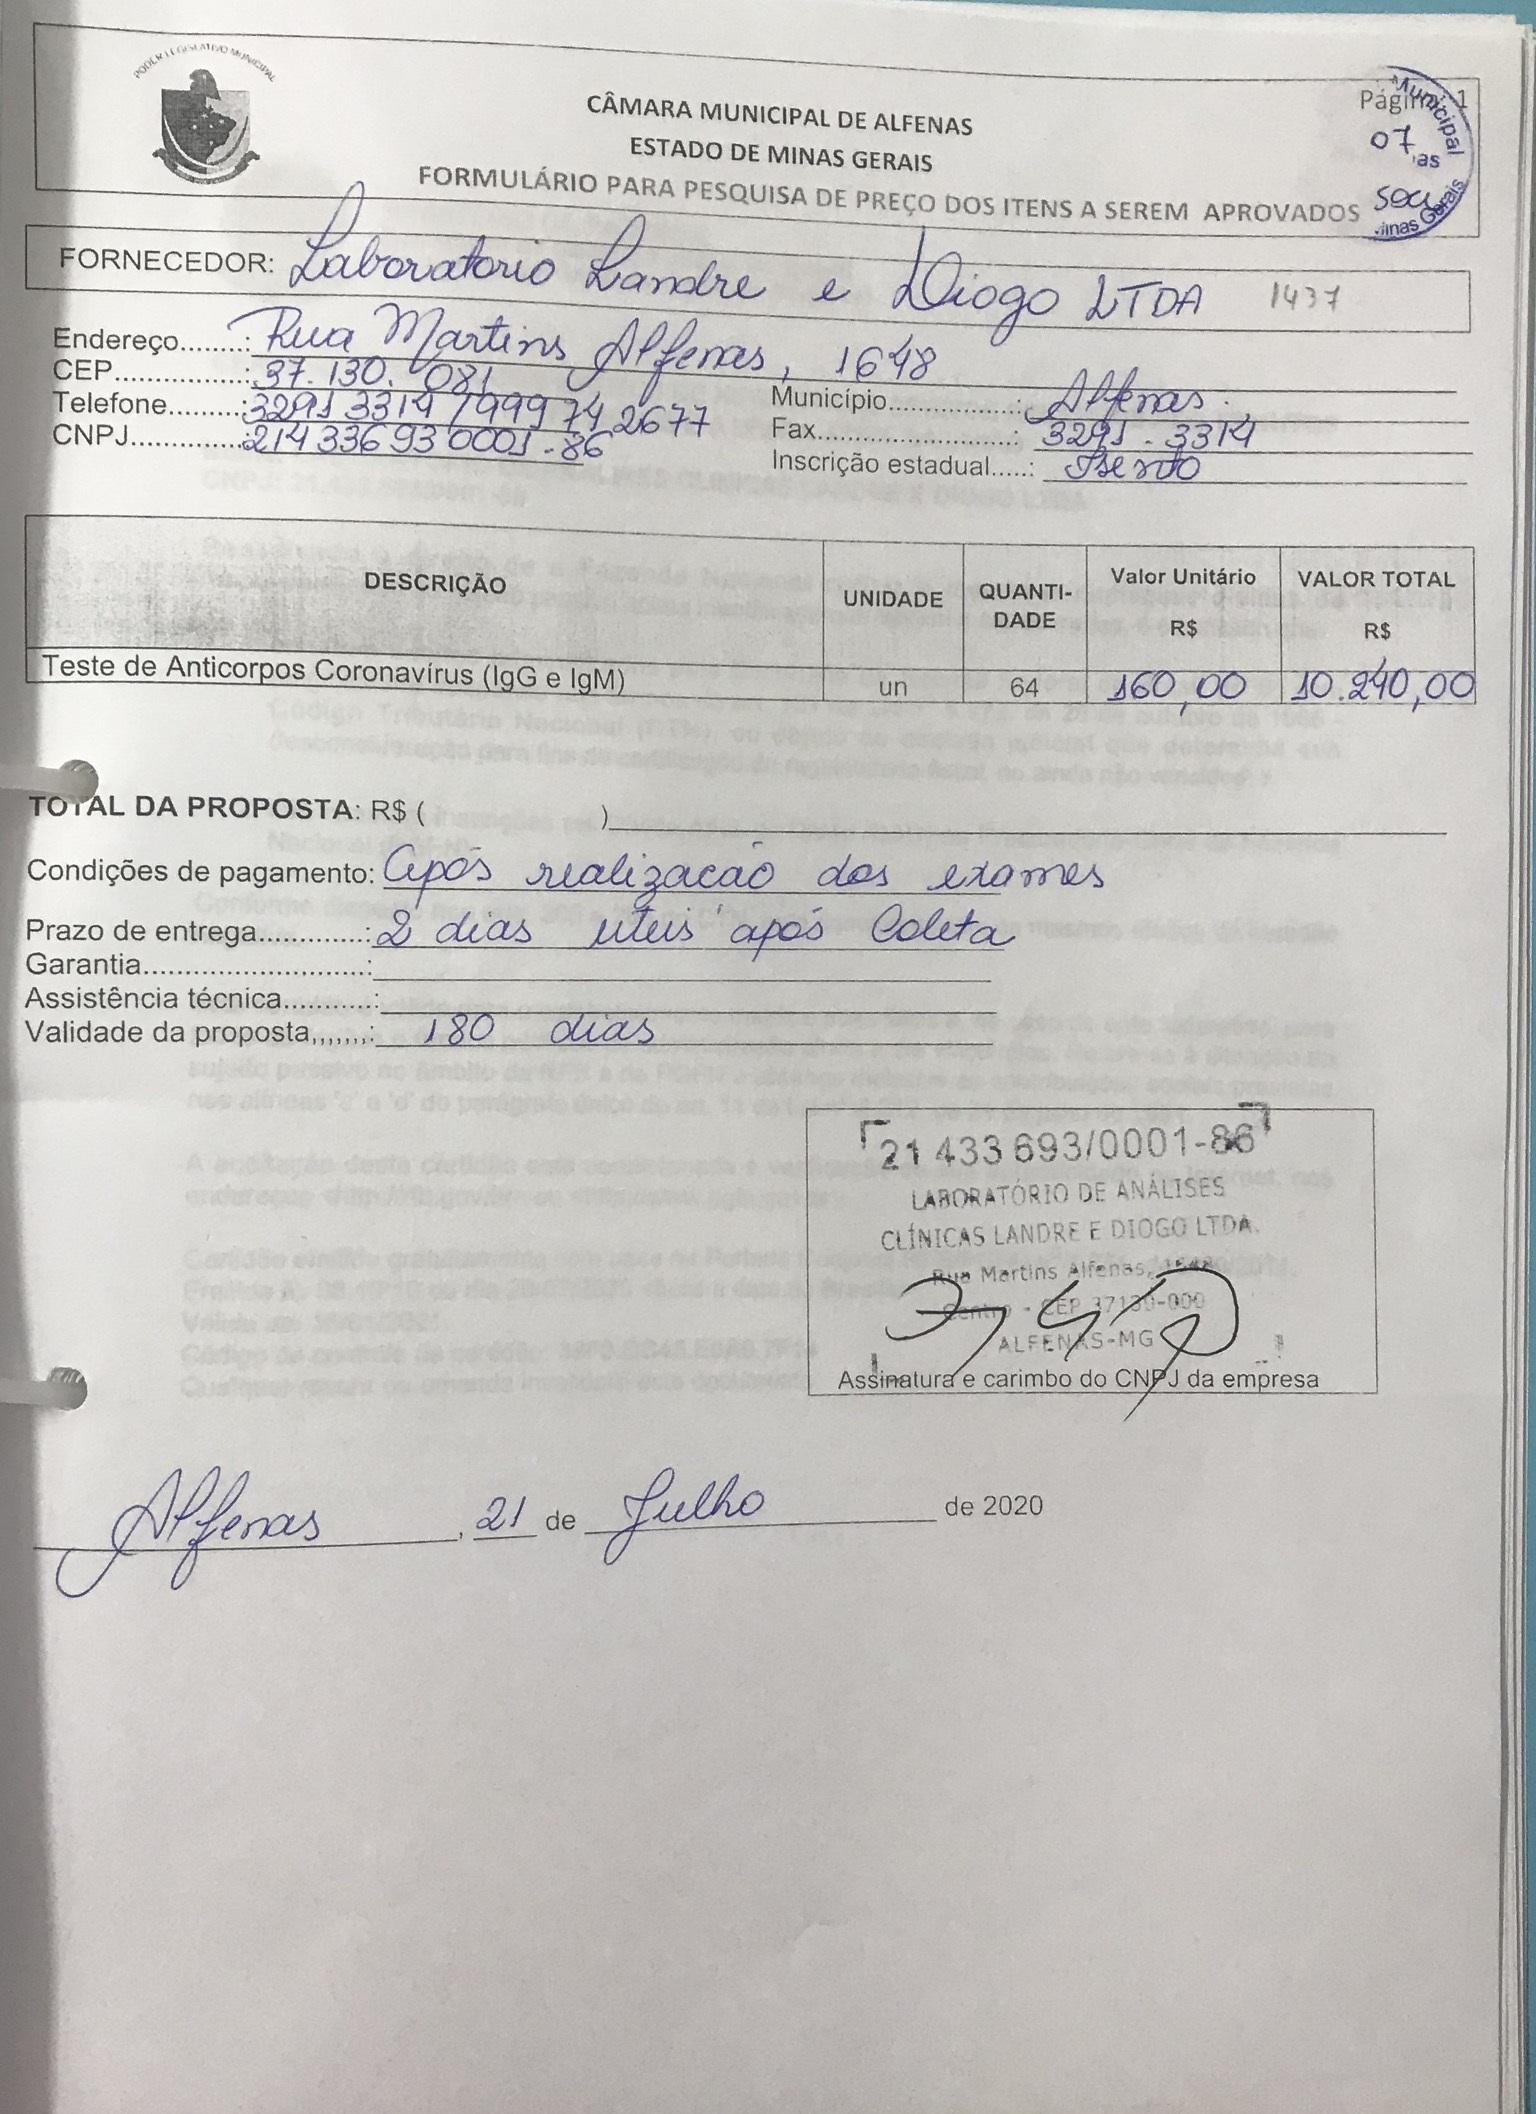 PODER LEGISLATIVO MUNICIPAL
CÂMARA MUNICIPAL DE ALFENAS
ESTADO DE MINAS GERAIS
FORMULÁRIO PARA PESQUISA DE PREÇO DOS ITENS A SEREM APROVADOS
Página 1
Municipal
07
as
Minas Gerais
FORNECEDOR: Laboratorio Landre e Diogo LTDA 1437
Endereço........: Rua Martins Alfenas, 1648
CEP.................: 37.130.081
Município..................: Alfenas.
Telefone.........: 3291 3314 / 999 74 2677
Fax............................: 3291-3314
CNPJ..............: 214 336 93 0001-86
Inscrição estadual.....: Isento
DESCRIÇÃO UNIDADE QUANTI-DADE Valor Unitário R$ VALOR TOTAL R$
Teste de Anticorpos Coronavírus (IgG e IgM) un 64 160,00 10.240,00
TOTAL DA PROPOSTA: R$ ( )
Condições de pagamento: Após realizacão dos exames
Prazo de entrega.............: 2 dias uteis após Coleta
Garantia............................:
Assistência técnica...........:
Validade da proposta,,,,,,,: 180 dias
21 433 693/0001-86
LABORATÓRIO DE ANÁLISES
CLÍNICAS LANDRE E DIOGO LTDA.
Rua Martins Alfenas, 1648
Centro - CEP 37130-000
ALFENAS-MG
Assinatura e carimbo do CNPJ da empresa
Alfenas, 21 de Julho de 2020